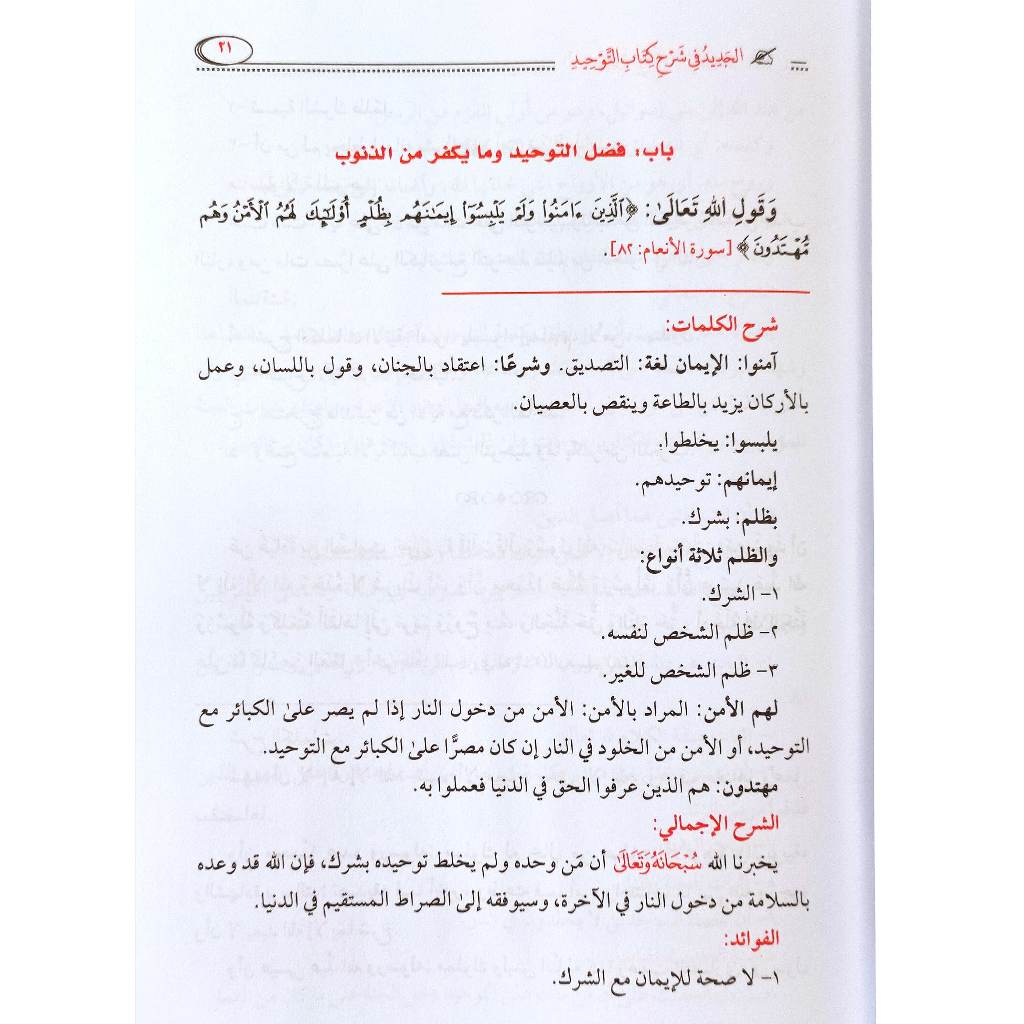 الجَدِيدُ فِي شَرْحِ كِتَابِ التَّوْحِيدِ
٢١
باب: فضل التوحيد وما يكفر من الذنوب
وَقَولِ اللهِ تَعَالَىٰ: ﴿ٱلَّذِينَ ءَامَنُوا۟ وَلَمْ يَلْبِسُوٓا۟ إِيمَـٰنَهُم بِظُلْمٍ أُو۟لَـٰٓئِكَ لَهُمُ ٱلْأَمْنُ وَهُم
مُّهْتَدُونَ﴾ [سورة الأنعام: ٨٢].
شرح الكلمات:
آمنوا: الإيمان لغة: التصديق. وشرعًا: اعتقاد بالجنان، وقول باللسان، وعمل
بالأركان يزيد بالطاعة وينقص بالعصيان.
يلبسوا: يخلطوا.
إيمانهم: توحيدهم.
بظلم: بشرك.
والظلم ثلاثة أنواع:
١- الشرك.
٢- ظلم الشخص لنفسه.
٣- ظلم الشخص للغير.
لهم الأمن: المراد بالأمن: الأمن من دخول النار إذا لم يصر علىٰ الكبائر مع
التوحيد، أو الأمن من الخلود في النار إن كان مصرًّا علىٰ الكبائر مع التوحيد.
مهتدون: هم الذين عرفوا الحق في الدنيا فعملوا به.
الشرح الإجمالي:
يخبرنا الله سُبْحَانَهُ وَتَعَالَىٰ أن مَن وحده ولم يخلط توحيده بشرك، فإن الله قد وعده
بالسلامة من دخول النار في الآخرة، وسيوفقه إلىٰ الصراط المستقيم في الدنيا.
الفوائد:
١- لا صحة للإيمان مع الشرك.